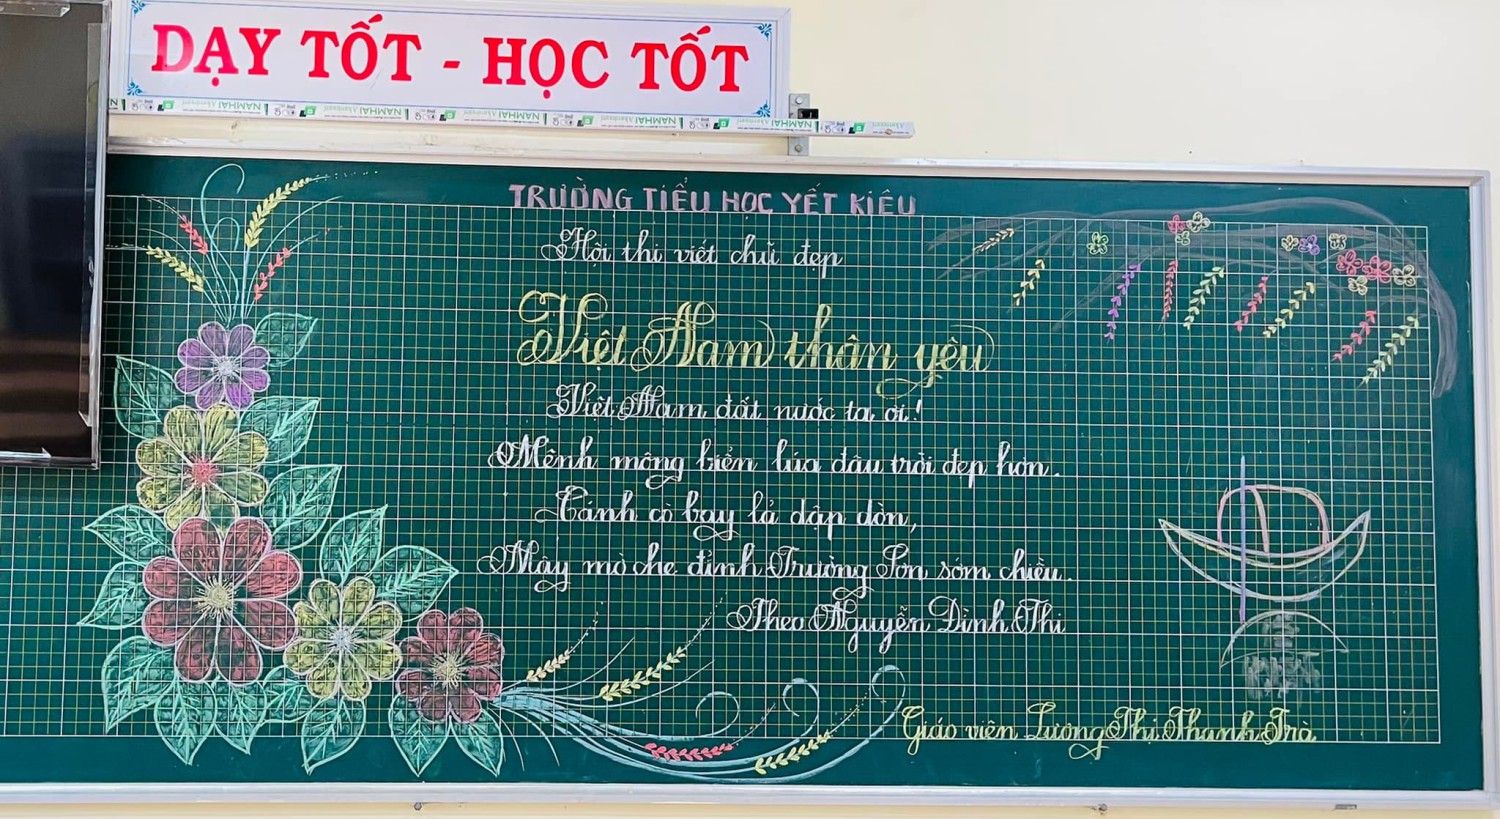 DẠY TỐT - HỌC TỐT
TRƯỜNG TIỂU HỌC YẾT KIÊU
Hội thi viết chữ đẹp
Việt Nam thân yêu
Việt Nam đất nước ta ơi!
Mênh mông biển lúa đâu trời đẹp hơn.
Cánh cò bay lả dập dờn,
Mây mờ che đỉnh Trường Sơn sớm chiều.
Theo Nguyễn Đình Thi
Giáo viên Lương Thị Thanh Trà